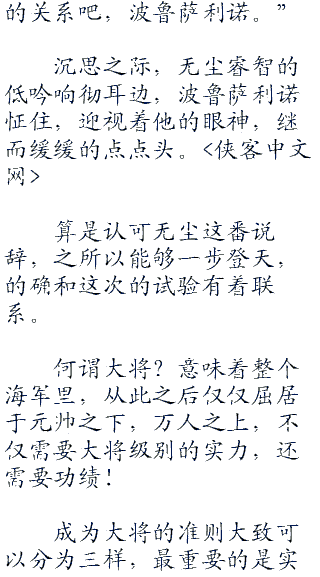 的关系吧，波鲁萨利诺。”
沉思之际，无尘睿智的
低吟响彻耳边，波鲁萨利诺
怔住，迎视着他的眼神，继
而缓缓的点点头。<侠客中文
网>
算是认可无尘这番说
辞，之所以能够一步登天，
的确和这次的试验有着联
系。
何谓大将？意味着整个
海军里，从此之后仅仅屈居
于元帅之下，万人之上，不
仅需要大将级别的实力，还
需要功绩！
成为大将的准则大致可
以分为三样，最重要的是实